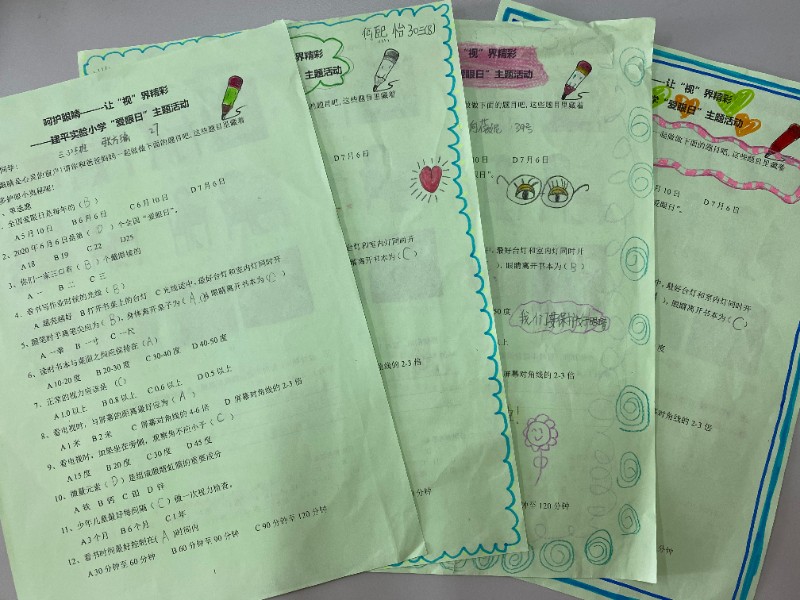 呵护眼睛——让“视”界精彩
——建平实验小学“爱眼日”主题活动
27
一起做做下面的题目吧,这些题目里藏着
1、全国爱眼日是每年的(B)
A 5月10日 B 6月6日 C 6月10日 D 7月6日
2、2020年6月6日是第(D)个全国“爱眼日”。
A 18 B 19 C 22 D25
3、你们一家三口有(B)个戴眼镜的
A 一 B 二 C 三
4、看书写作业时候的光线(B)
A 越亮越好 B 打开书桌上的台灯 C 光线适中,最好台灯和室内灯同时开
5、握笔时手离笔尖应为(B),身体离开桌子为(A),眼睛离开书本为(C)
A 一拳 B 一寸 C 一尺
6、读时书本与桌面之间应保持在(A)
A 10-20度 B 20-30度 C 30-40度 D 40-50度
7、正常的视力应该是(C)
A 1.0以上 B 0.8以上 C 0.6以上 D 0.5以上
8、看电视时,与屏幕的距离最好应为(A)
A 1米 B 2米 C 屏幕对角线的4-6倍 D 屏幕对角线的2-3倍
9、看电视时,如果坐在旁侧,观察角不应小于(C)
A 15度 B 20度 C 30度 D 45度
10、微量元素(D)是组成眼睛虹膜的重要成分
A 铁 B 钙 C 铝 D 锌
11、少年儿童最好每间隔(C)做一次视力检查。
A 3个月 B 6个月 C 1年
12、看书时间最好控制在(A)时间内
A 30分钟至60分钟 B 60分钟至90分钟 C 90分钟至120分钟
1
界精彩
”主题活动
题目吧,这些题目里藏着
D 7月6日
最好台灯和室内灯同时开
眼睛离开书本为(C)
线的2-3倍
分钟
“视”界精彩
爱眼日”主题活动
做做下面的题目吧,这些题目里藏着
D 7月6日
眼日”。
,最好台灯和室内灯同时开
,眼睛离开书本为(B)
度
我们要保护好眼睛
屏幕对角线的2-3倍
分钟至120分钟
让“视”界精彩
学“爱眼日”主题活动
起做做下面的题目吧,这些题目里藏着
10日 D 7月6日
眼日”。
,最好台灯和室内灯同时开
,眼睛离开书本为(C)
度
幕对角线的2-3倍
分钟